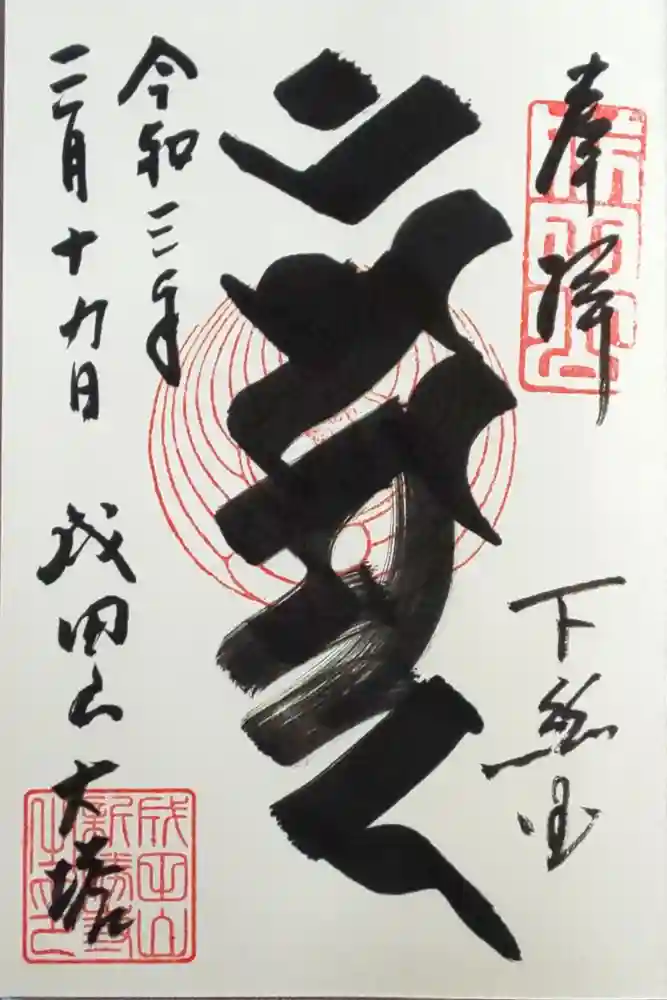 奉拝
下総国
令和三年
二月十九日
成田山大塔
成田山
新勝寺